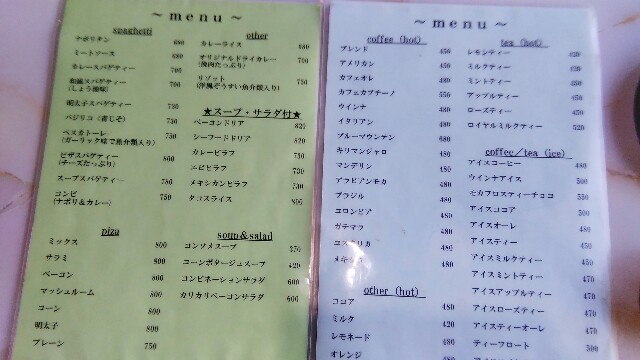 ～ menu ～
spaghetti
ナポリタン 680
ミートソース 680
カレースパゲティー 700
和風スパゲティー 700
(しょう油味)
明太子スパゲティー 730
バジリコ (青じそ) 730
ペスカトーレ 750
(ガーリック味で魚介類入り)
ピザスパゲティー 800
(チーズたっぷり)
スープスパゲティー 780
コンビ 750
(ナポリ&カレー)
piza
ミックス 800
サラミ 800
ベーコン 800
マッシュルーム 800
コーン 800
明太子 800
プレーン 750
other
カレーライス 680
オリジナルドライカレー 700
(挽肉たっぷり)
リゾット 750
(洋風ぞうすい魚介類入り)
★スープ・サラダ付★
ベーコンドリア 825
シーフードドリア 825
カレーピラフ 750
エビピラフ 750
メキシカンピラフ 750
タコスライス 800
soup&salad
コンソメスープ 370
コーンポタージュスープ 420
コンビネーションサラダ 600
カリカリベーコンサラダ 600
～ menu ～
coffee (hot)
ブレンド 450
アメリカン 450
カフェオレ 480
カフェカプチーノ 550
ウインナ 480
イタリアン 480
ブルーマウンテン 680
キリマンジャロ 480
マンデリン 480
アラビアンモカ 480
ブラジル 480
コロンビア 480
ガテマラ 480
コスタリカ 480
メキシコ 480
other (hot)
ココア 480
ミルク 420
レモネード 480
オレンジ 480
tea (hot)
レモンティー 420
ミルクティー 420
ミントティー 450
アップルティー 450
ローズティー 450
ロイヤルミルクティー 520
coffee/tea (ice)
アイスコーヒー 480
ウインナアイス 500
モカフロスティーチョコ 550
アイスココア 500
アイスオーレ 480
アイスティー 450
アイスミルクティー 450
アイスミントティー 470
アイスアップルティー 470
アイスローズティー 470
アイスティーオーレ 470
ティーフロート 500